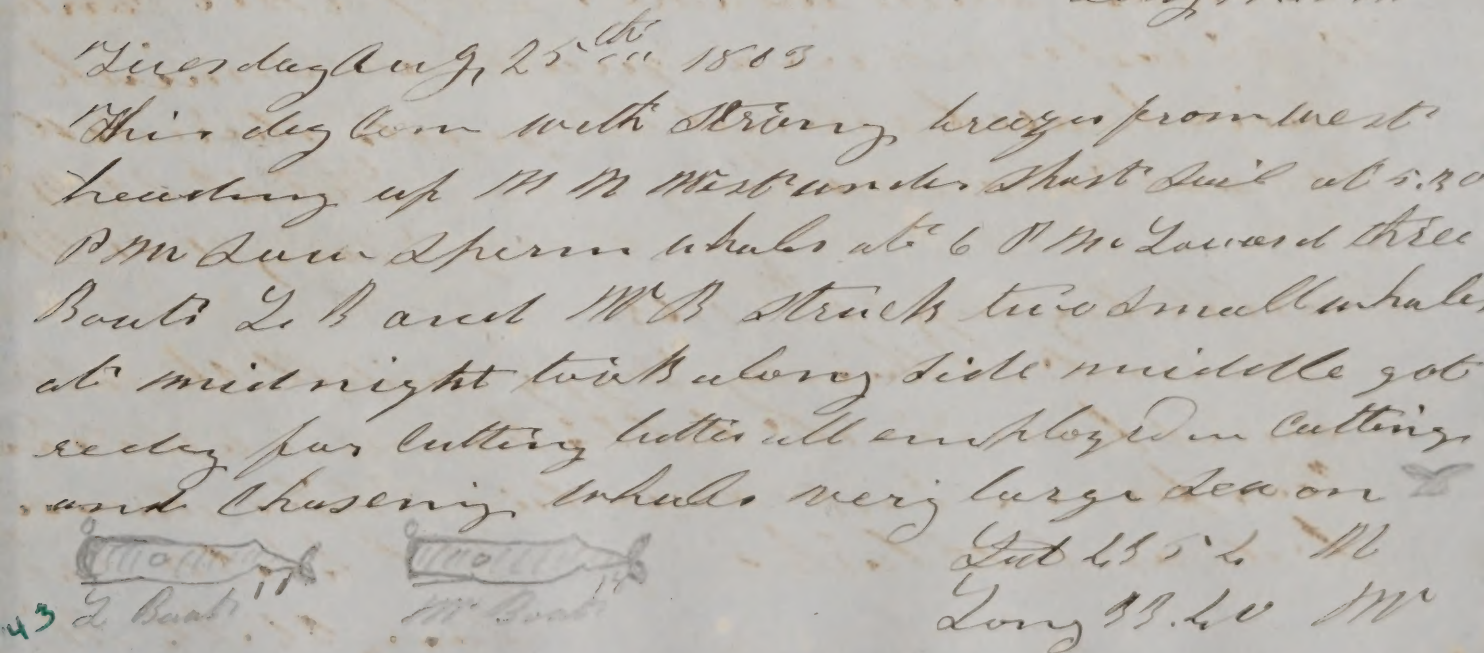 Tuesday Aug, 25th 1863
This day Com with Strong breezes from west
heading up N N West under Short Sail at 5.30
P M Saw Sperm whales at 6 P M Lowerd three
Boats L B and W B Struck two Small whales
at midnight took along Side middle got
redey for Cutting latter all employed in Cutting
and Chasening whales very large Sea on
Lat N
Long 33.40 W
L Boat 11
W Boat
43